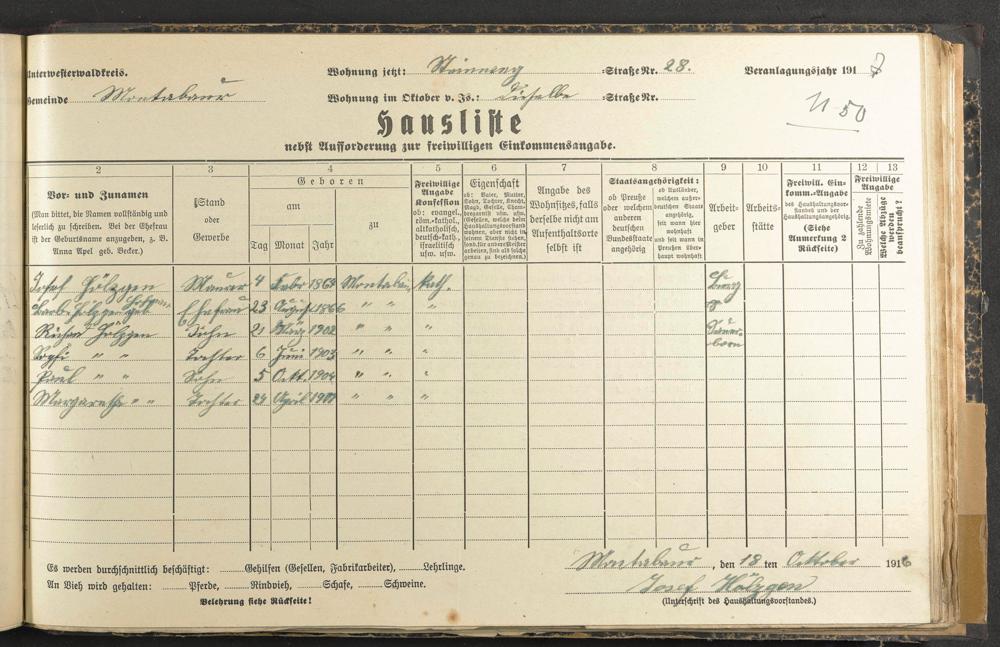 Unterwesterwaldkreis. Wohnung jetzt: Steinweg Straße Nr. 28. Veranlagungsjahr 1917
Gemeinde Montabaur Wohnung im Oktober v. Js.: Dieselbe Straße Nr.
11 50
Hausliste
nebst Aufforderung zur freiwilligen Einkommensangabe.
2 3 4 5 6 7 8 9 10 11 12 13
Vor- und Zunamen
(Man bittet, die Namen vollständig und
leserlich zu schreiben. Bei der Ehefrau
ist der Geburtsname anzugeben, z. B.
Anna Apel geb. Becker.)
Stand
oder
Gewerbe
Geboren
am
zu
Tag Monat Jahr
Freiwillige
Angabe
Konfession
ob: evangel.,
röm.-kathol.,
altkatholisch,
deutsch-kath.,
israelitisch
usw. usw.
Eigenschaft
Angabe des
Wohnsitzes, falls
derselbe nicht am
Aufenthaltsorte
selbst ist
Staatsangehörigkeit:
ob Preuße
oder welchem
anderen
deutschen
Bundesstaate
angehörig
ob Ausländer,
welchem außer-
deutschen Staate
angehörig,
seit wann hier
wohnhaft
und seit wann in
Preußen über-
haupt wohnhaft
Arbeit-
geber
Arbeits-
stätte
Freiwill. Ein-
komm.-Angabe
des Haushaltungsvor-
standes und der
Haushaltungsangehörig.
(Siehe
Anmerkung 2
Rückseite)
Freiwillige
Angabe
Zu zahlende
Wohnungsmiete
Welche Abzüge
werden
beansprucht?
Josef Hölzgen Maurer 4 Febr 1869 Montabaur kath.
Hölzgen geb Ehefrau 23 August 1866 " " "
Richard Hölzgen Sohn 21 März 1902 " " "
Sophi " " Tochter 6 Juni 1903 " " "
Paul " " Sohn 5 Okt. 1904 " " "
Margarethe " " Tochter 24 April 1911 " " "
Es werden durchschnittlich beschäftigt: Gehilfen (Gesellen, Fabrikarbeiter), Lehrlinge.
An Vieh wird gehalten: Pferde, Rindvieh, Schafe, Schweine.
Belehrung siehe Rückseite!
Montabaur, den 18 ten Oktober 1916
Josef Hölzgen
(Unterschrift des Haushaltungsvorstandes.)